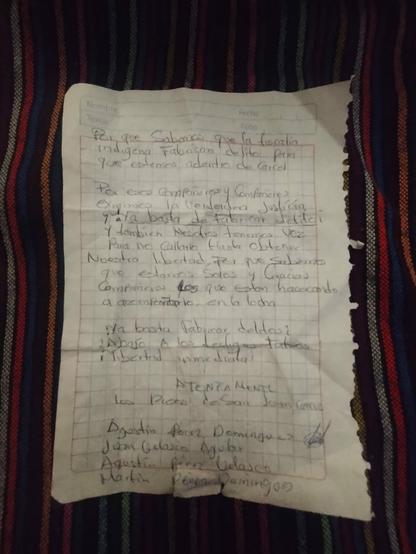 Nombre
Fecha
Tema
Por que Sabemos que la fiscalia
indigena Fabrican delito para
que estemos adentro de Carcel
Por eso Compañeros y Compañeras
exigimos la Verdadera Justicia
ya basta de Fabricar delito
y tambien Nosotros tenemos Voz
Para no Callarlo hasta Obtener
Nuestra libertad, Por que Sabemos
que estamos Solos y Gracias
Compañeros los que estan
a en la lucha
¡Ya basta Fabricar delitos!
¡Abajo A los testigos Falsos
¡libertad inmediata!
ATENTAMENTE
los Presos de San Juan
Agustin Pérez Dominguez
Juan Velasco Aguilar
Agustin Pérez Velasco
Martin Pérez Dominguez